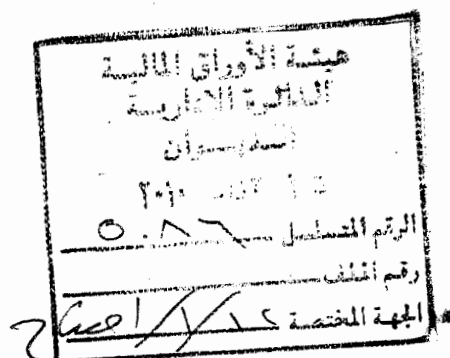 هيئة الأوراق المالية
الدائرة الإدارية
الديوان
٢٠١٠
الرقم المتسلسل ٥٠٨٦
رقم الملف
الجهة المختصة